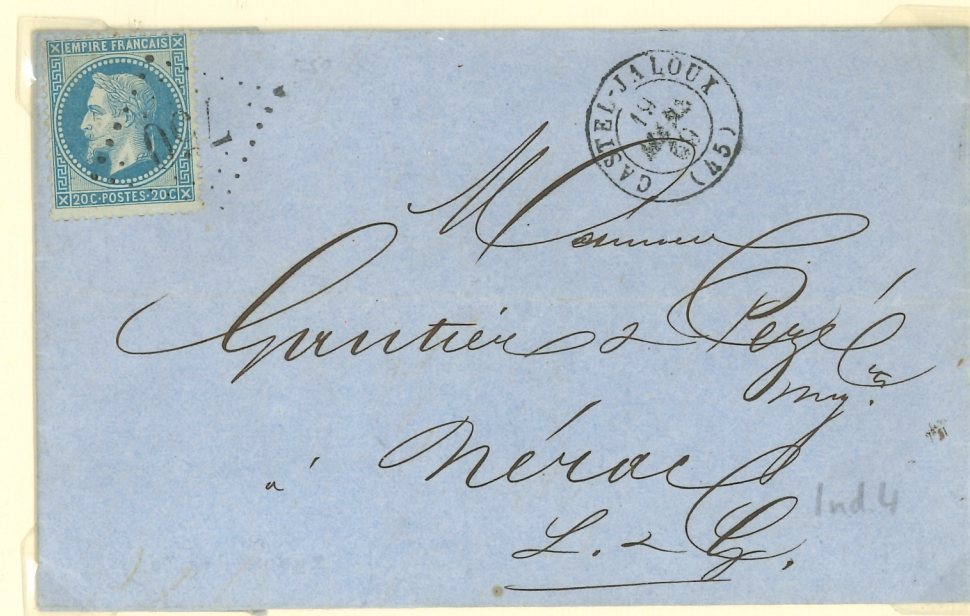 EMPIRE FRANCAIS
20C·POSTES·20C
CASTEL-JALOUX
19
(45)
Monsieur
Gautier & Pezé
à Nérac
L. & G.
Ind. 4